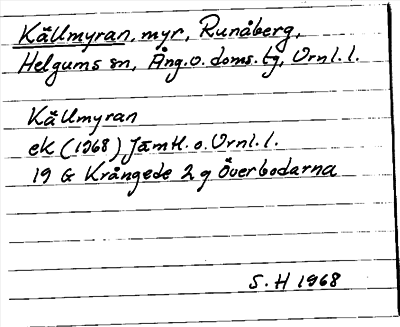 Källmyran, myr, Runåberg,
Helgums sn, Ång. o. doms. tg, Vrnl. l.
Källmyran
ek (1968) Jämtl. o. Vrnl. l.
19 G Krångede 2 g Överbodarna
S. H 1968